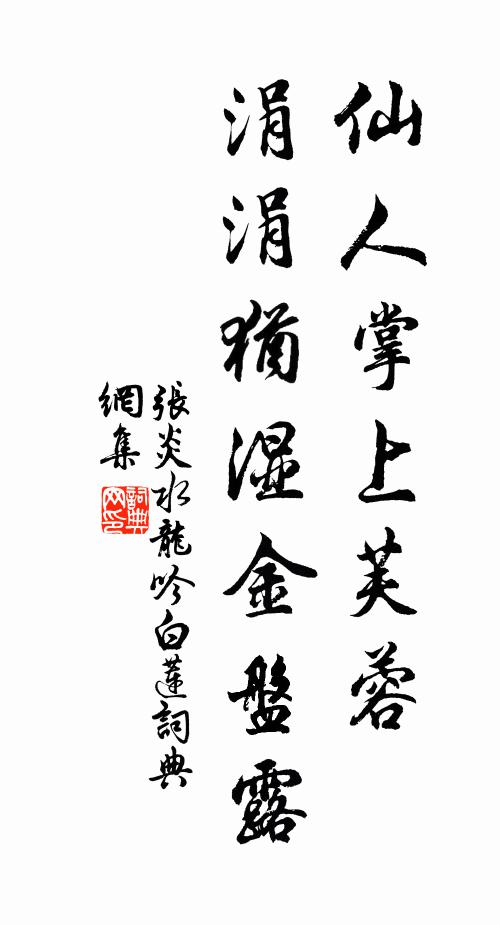 仙人掌上芙蓉
涓涓猶湿金盤露
張炎水龍吟白蓮詞典
網集
詞典
网印